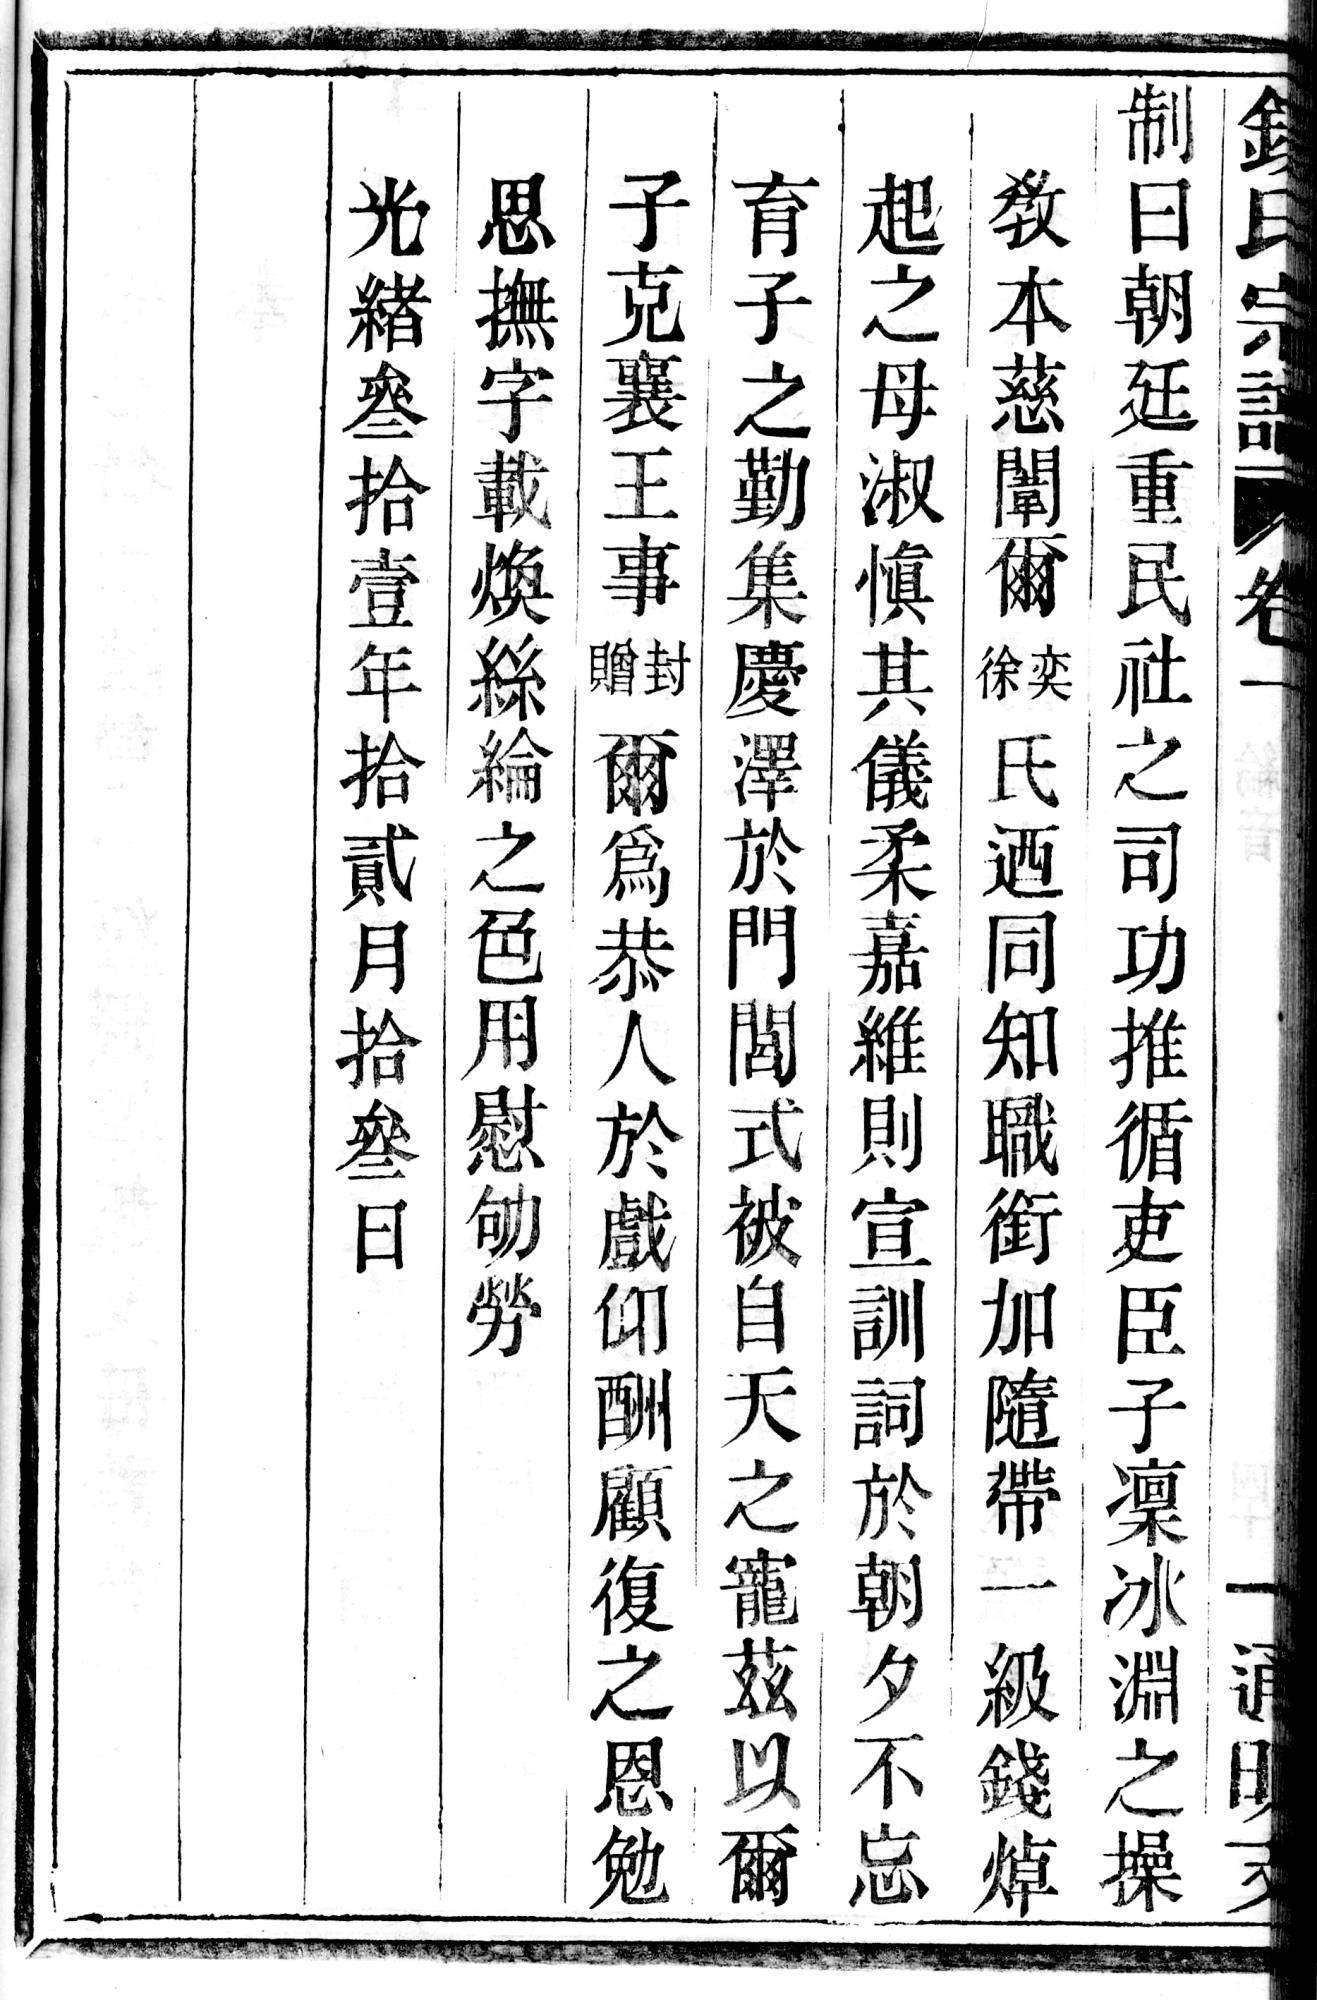 錢氏宗譜 卷一 一 通明支
制曰朝廷重民社之司功推循吏臣子凜冰淵之操
敎本慈闈爾奕徐氏迺同知職銜加隨帶一級錢焯
起之母淑慎其儀柔嘉維則宣訓詞於朝夕不忘
育子之勤集慶澤於門閭式被自天之寵茲以爾
子克襄王事封贈爾爲恭人於戲仰酬顧復之恩勉
思撫字載煥絲綸之色用慰劬勞
光緒叄拾壹年拾貳月拾叄日